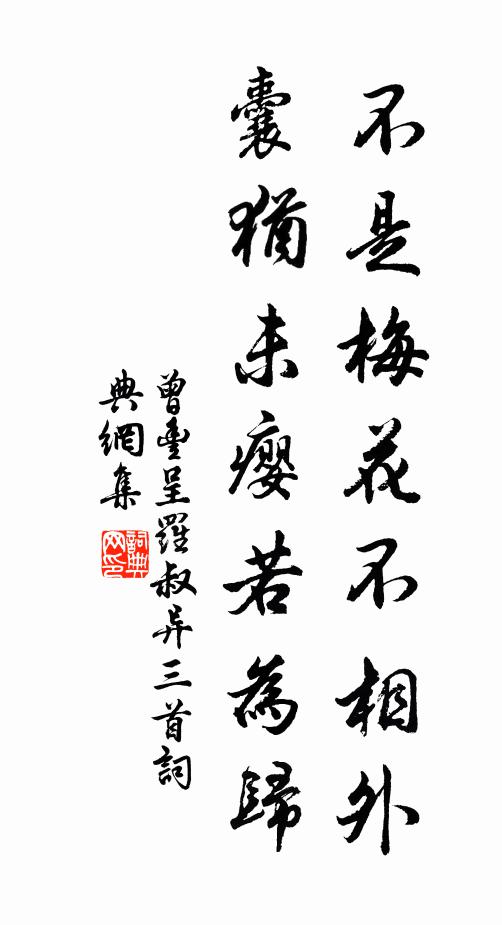 不是梅花不相外
囊猶未瘿若為歸
曾豐呈羅叔异三首詞
典網集
詞典
网印